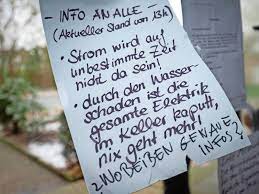 - INFO AN ALLE -
(Aktueller Stand von 13h)
• Strom wird auf
unbestimmte Zeit
nicht da sein!
• durch den Wasser-
schaden ist die
gesamte Elektrik
im Keller kaputt,
nix geht mehr!
GENAUE
INFOS?